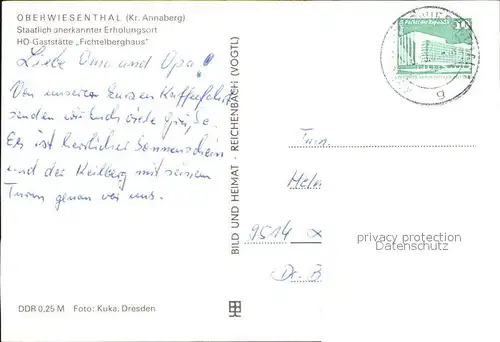 OBERWIESENTHAL (Kr. Annaberg)
Staatlich anerkannter Erholungsort
HO-Gaststätte „Fichtelberghaus"
Liebe Oma und Opa!
Von unserer kurzen Kaffeefahrt
senden wir Euch viele Grüße.
Es ist herrlicher Sonnenschein
und der Keilberg mit seinem
Turm genau vor uns.
DDR 0,25 M Foto: Kuka, Dresden
BILD UND HEIMAT · REICHENBACH (VOGTL)
Palast der Republik
10
Fam.
9514
Dr. B
privacy protection
Datenschutz